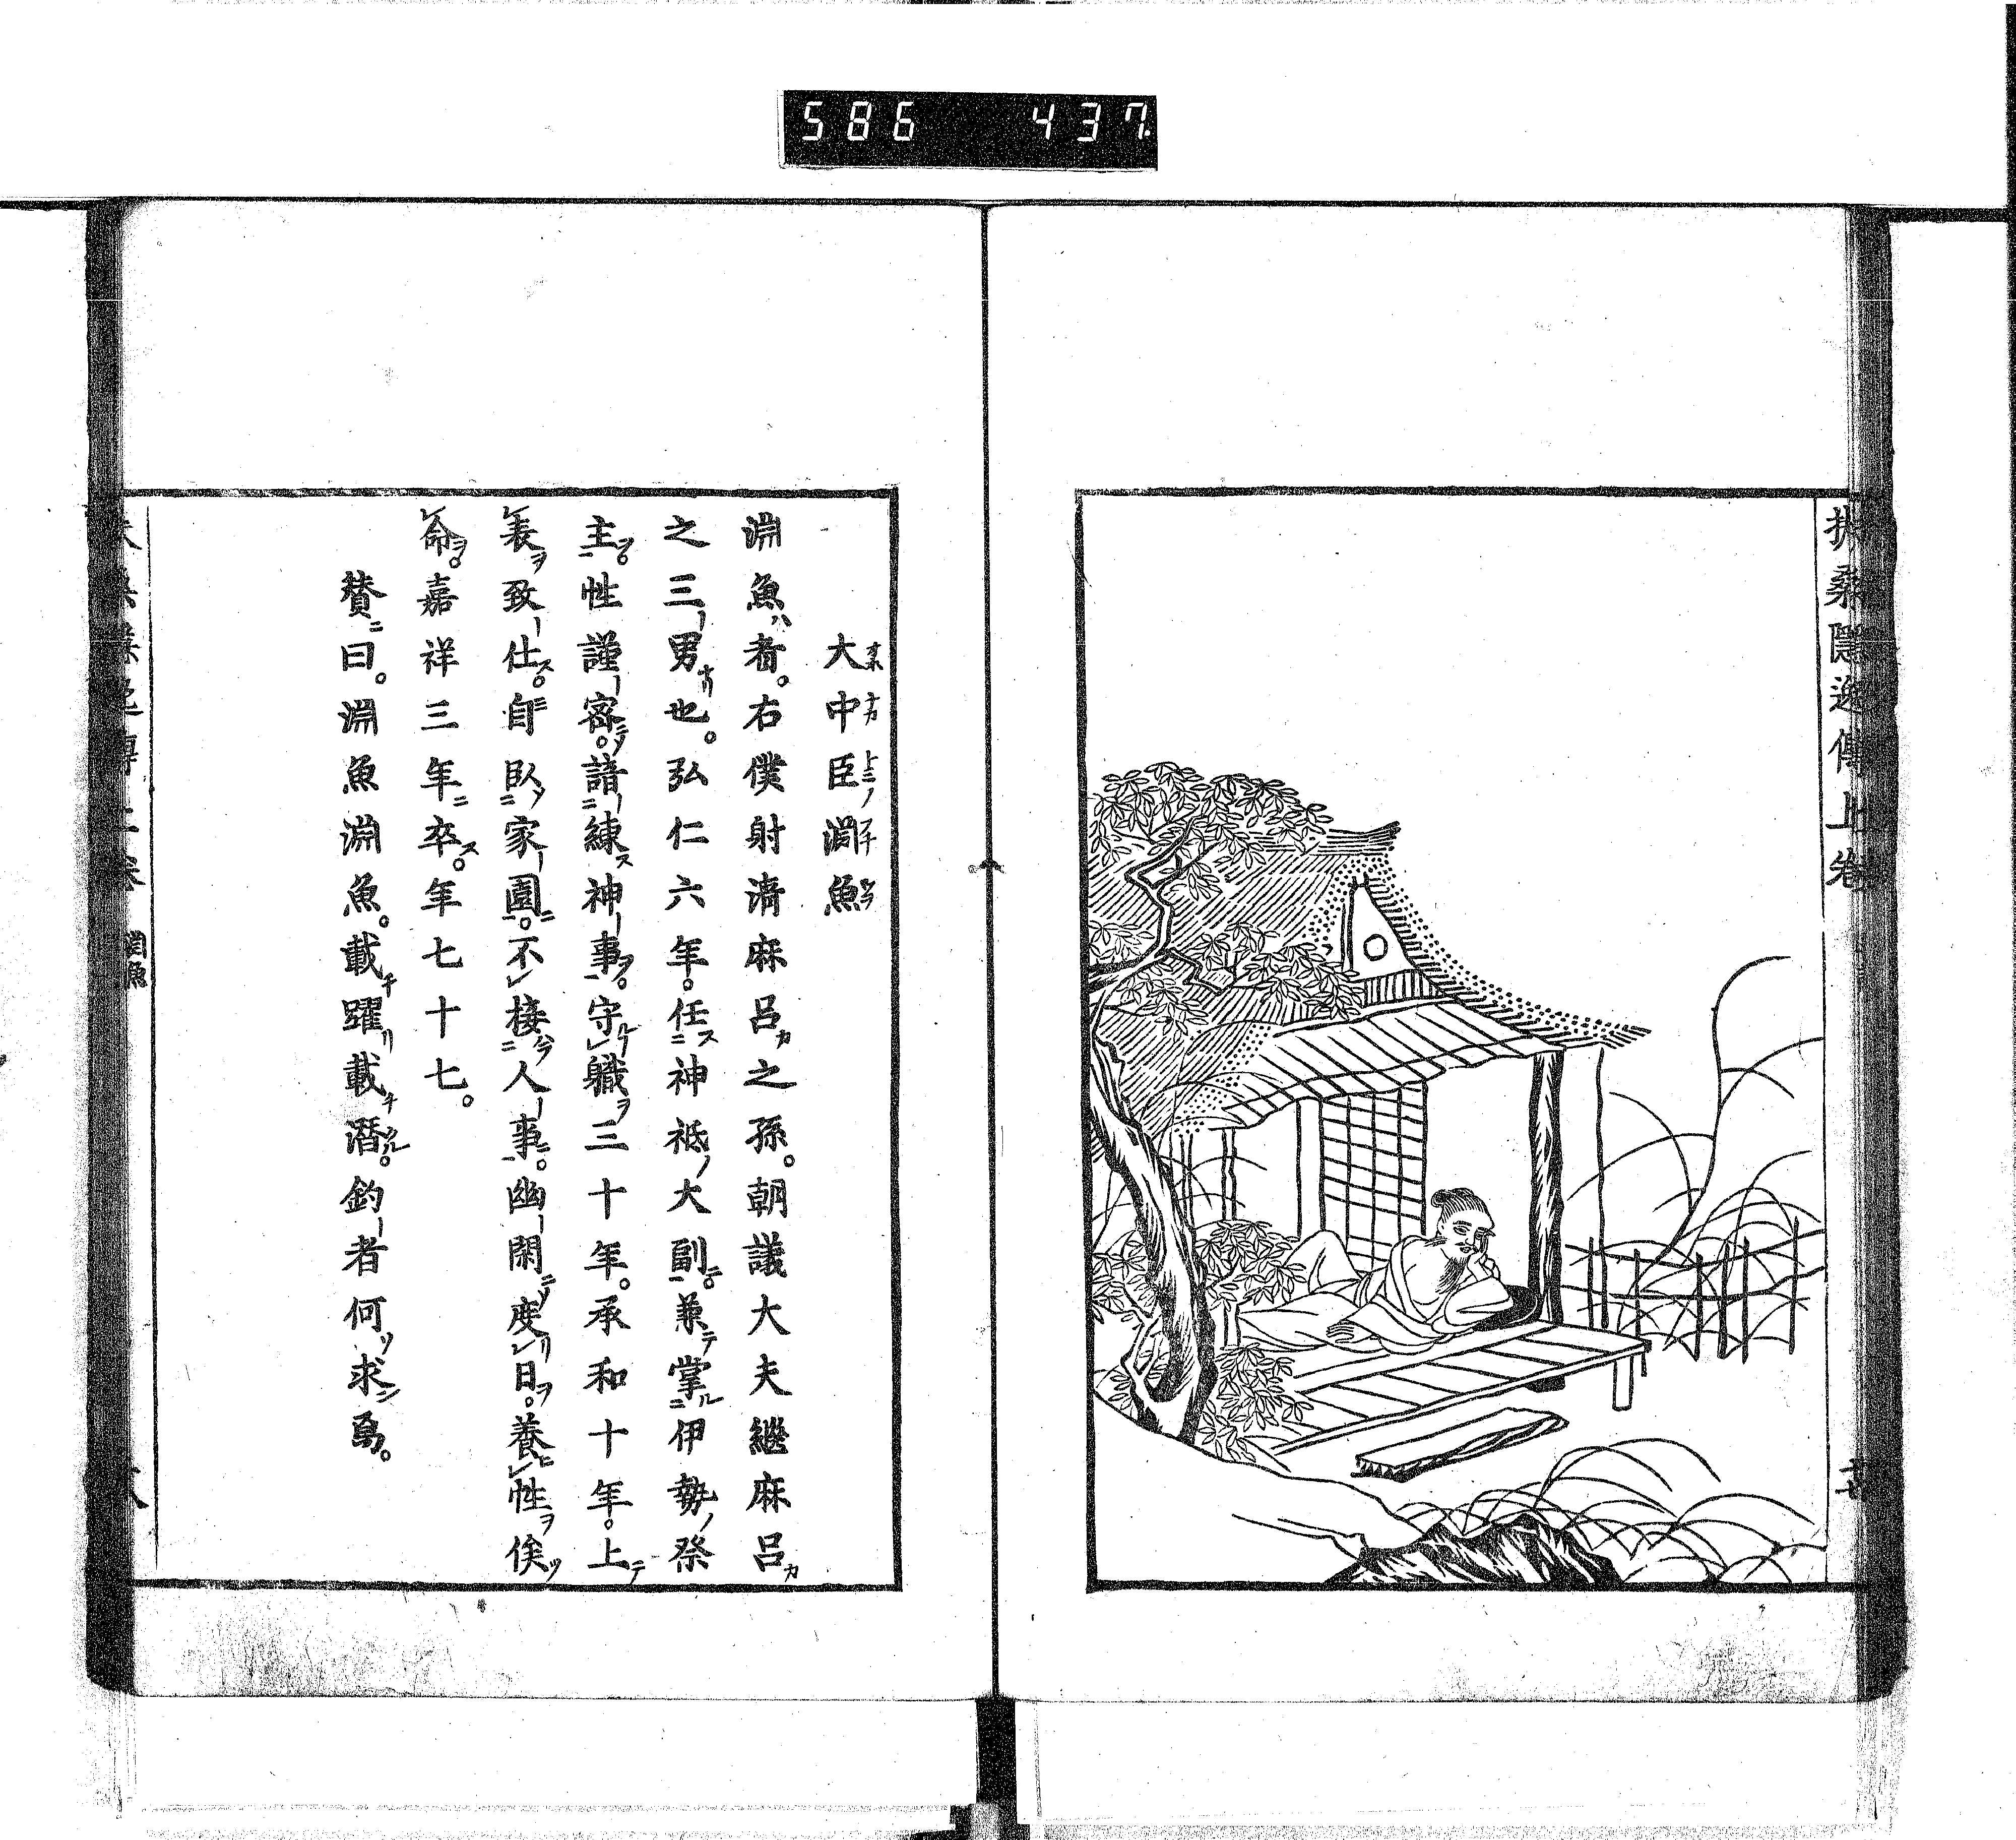 586 437
扶桑隱逸傳上卷
大中臣淵魚
淵魚者。右僕射淸麻呂之孫。朝議大夫繼麻呂
之三男也。弘仁六年。任神祗大副。兼掌伊勢祭
主。性謹密。諳練神事。守職三十年。承和十年。上
表致仕。自臥家園。不接人事。幽閑度日。養性俟
命。嘉祥三年卒。年七十七。
贊曰。淵魚淵魚。載躍載潛。釣者何求焉。
淵魚